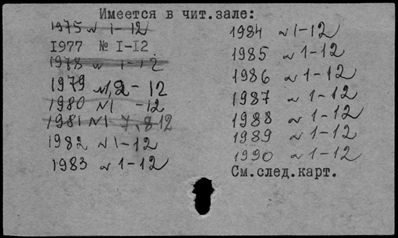 Имеется в чит.зале:
1975 № 1-12
1977 № I-I2
1978 № 1-12
1979 №1,2-12
1980 №1 -12
1981 №1 7,8-12
1982 №1-12
1983 №1-12
1984 №1-12
1985 №1-12
1986 №1-12
1987 №1-12
1988 №1-12
1989 №1-12
1990 №1-12
См.след.карт.